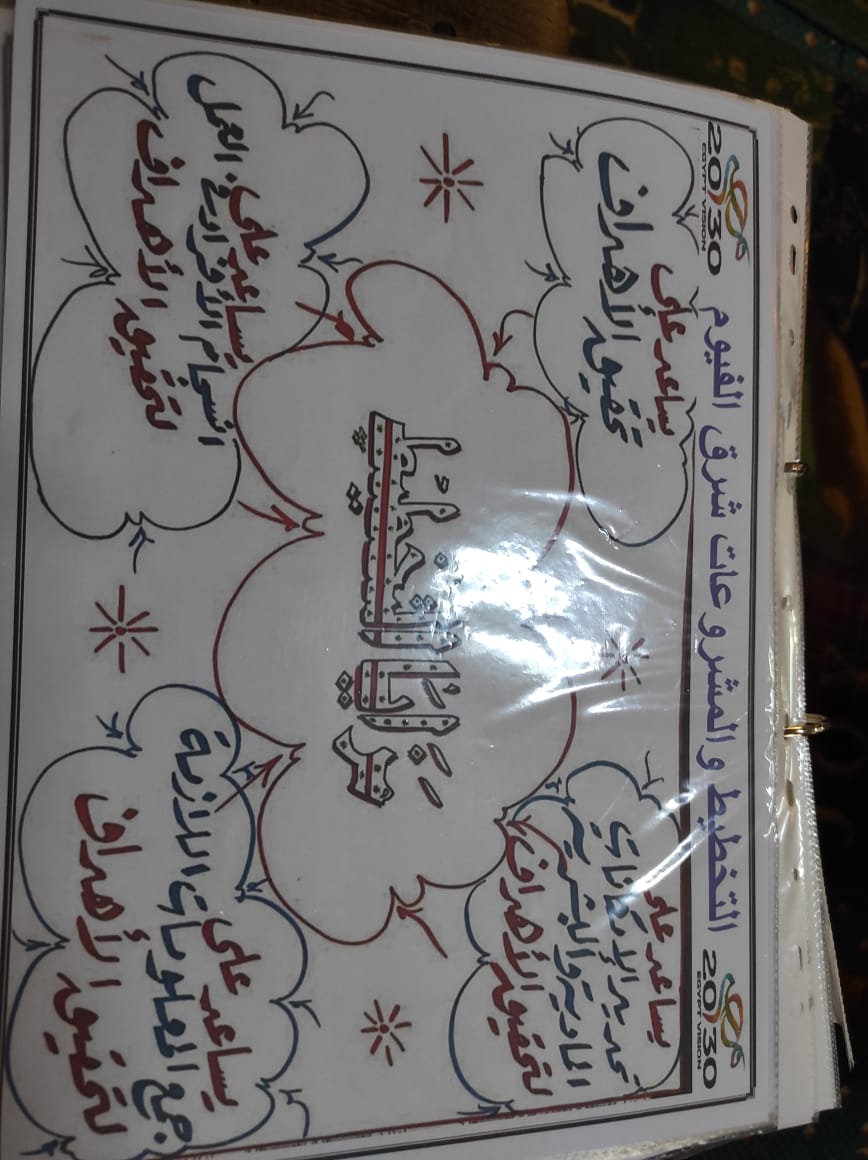 2030
EGYPT VISION
التخطيط والمشروعات شرق الفيوم
2030
EGYPT VISION
يساعد على
تحديد الإمكانات
المادية والبشرية
لتحقيق الأهداف
يساعد على
تحقيق الأهداف
مزايا التخطيط
يساعد على
جمع المعلومات اللازمة
لتحقيق الأهداف
يساعد على
انسجام الأفراد في العمل
لتحقيق الأهداف